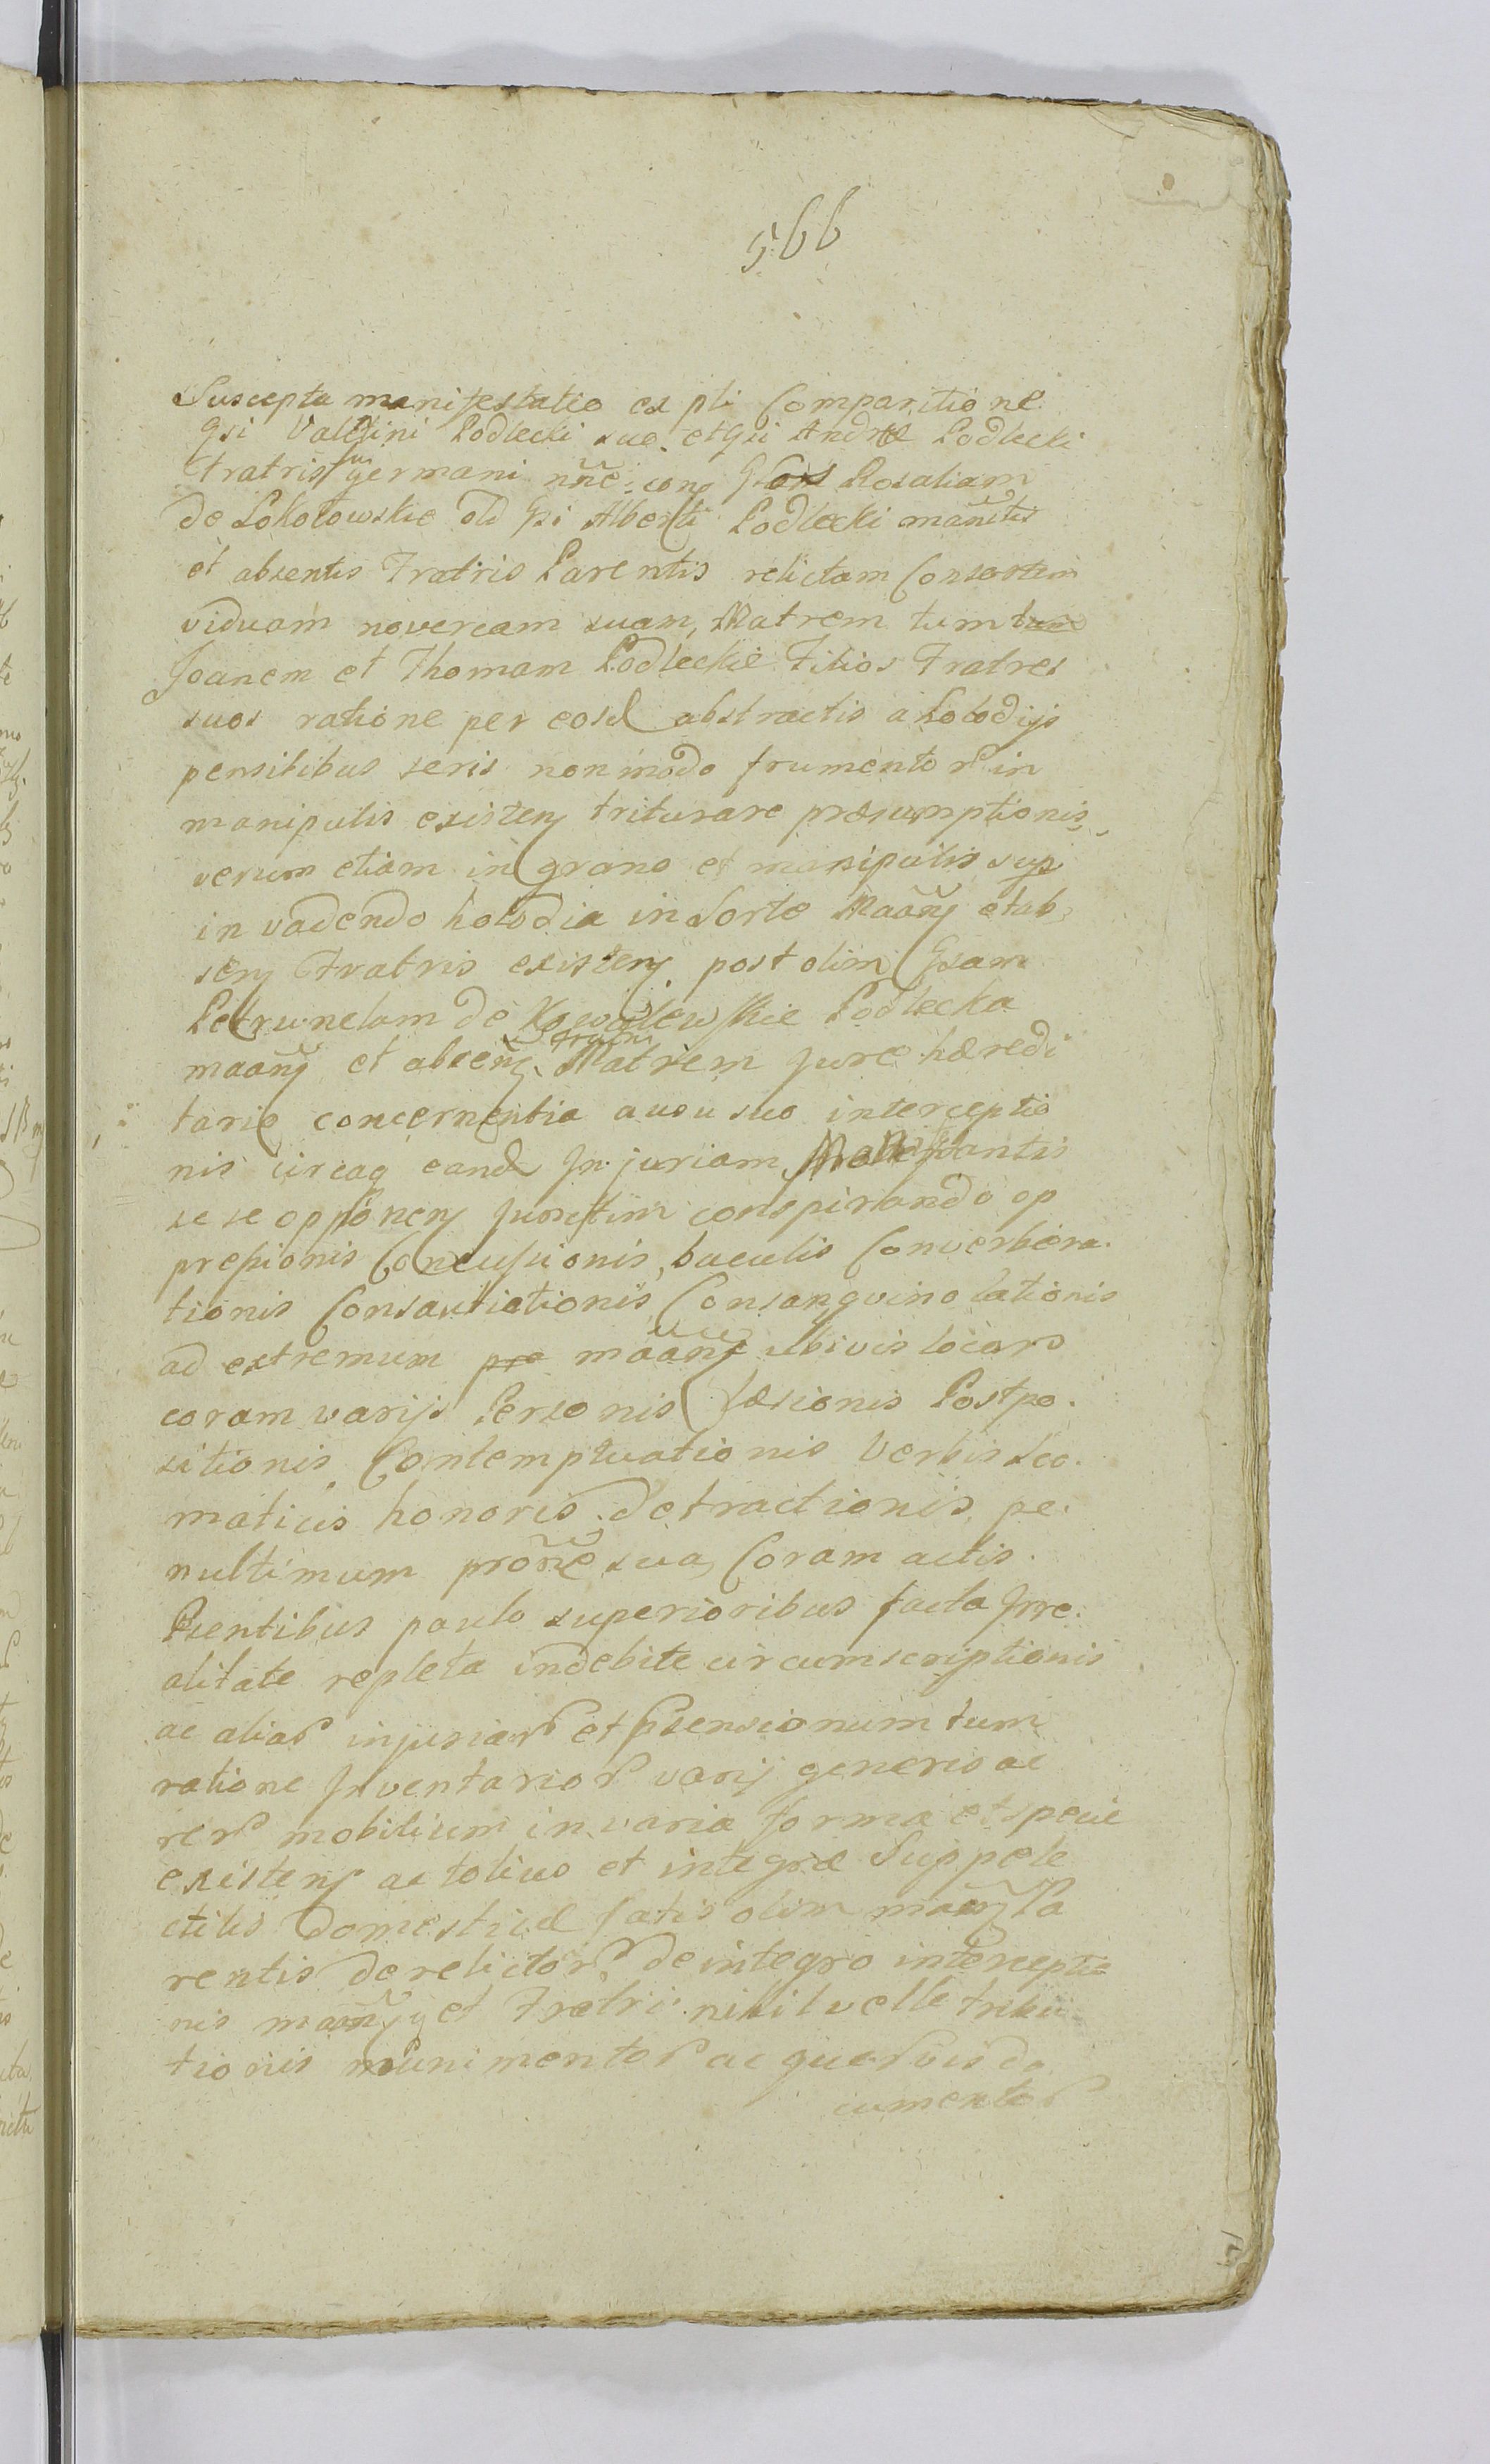 566
Suscepta manifestatio ex pli Comparitione
Gsi Valẽtini Podlecki suo et Gsi Andreæ Podlecki
Fratris sui germani nñe con Gsos Rosaliam
de Sokołowskie old Gsi Alberti Podlecki mañtis
et absentis Fratris Parentis relictam Consortem
viduam novercam suam, Matrem tum
Joanem et Thomam Podleckie Filios Fratres
suos ratione per eosd abstractis a kołodijs
pensilibus seris non modo frumentor in
manipulis existen triturare præsumptionis,
verum etiam in grano et manipulis sup
invadendo kołodia in Sorte Maañ et ab
sen Fratris existen post olim Gsam
Petrunelam de Kowalewskie Podlecka
maañ et absen Fratris Matrem Jure hæredi
tario concernentia ausu suo interceptio
nis circaq eand Injuriam Manifestantis
se se opponen Junctim conspirando op
pressionis Concussionis, baculis Converbera
tionis Consautiationis Consanguinolationis
ad extremum maañ ubivis locar
coram varijs Personis Læsionis Postpo
sitionis Contemptuationis Verbis Sco
maticis honoris detractionis, pe
nultimum proñe sua, Coram actis
Psentibus paulo superioribus facta Irre
alitate repleta indebite circumscriptionis
ac aliar injuriar et Psensionum tum
ratione Inventarior varij generis ac
rer mobilium in varia forma et specie
existen ac totius et integræ Suppele
ctilis Domesticæ fatis olim maañ Pa
rentis derelictor de integro interceptio
nis maañ et Fratri nihil velle tribui
tionis munimentor ac quorvis do
cumentor